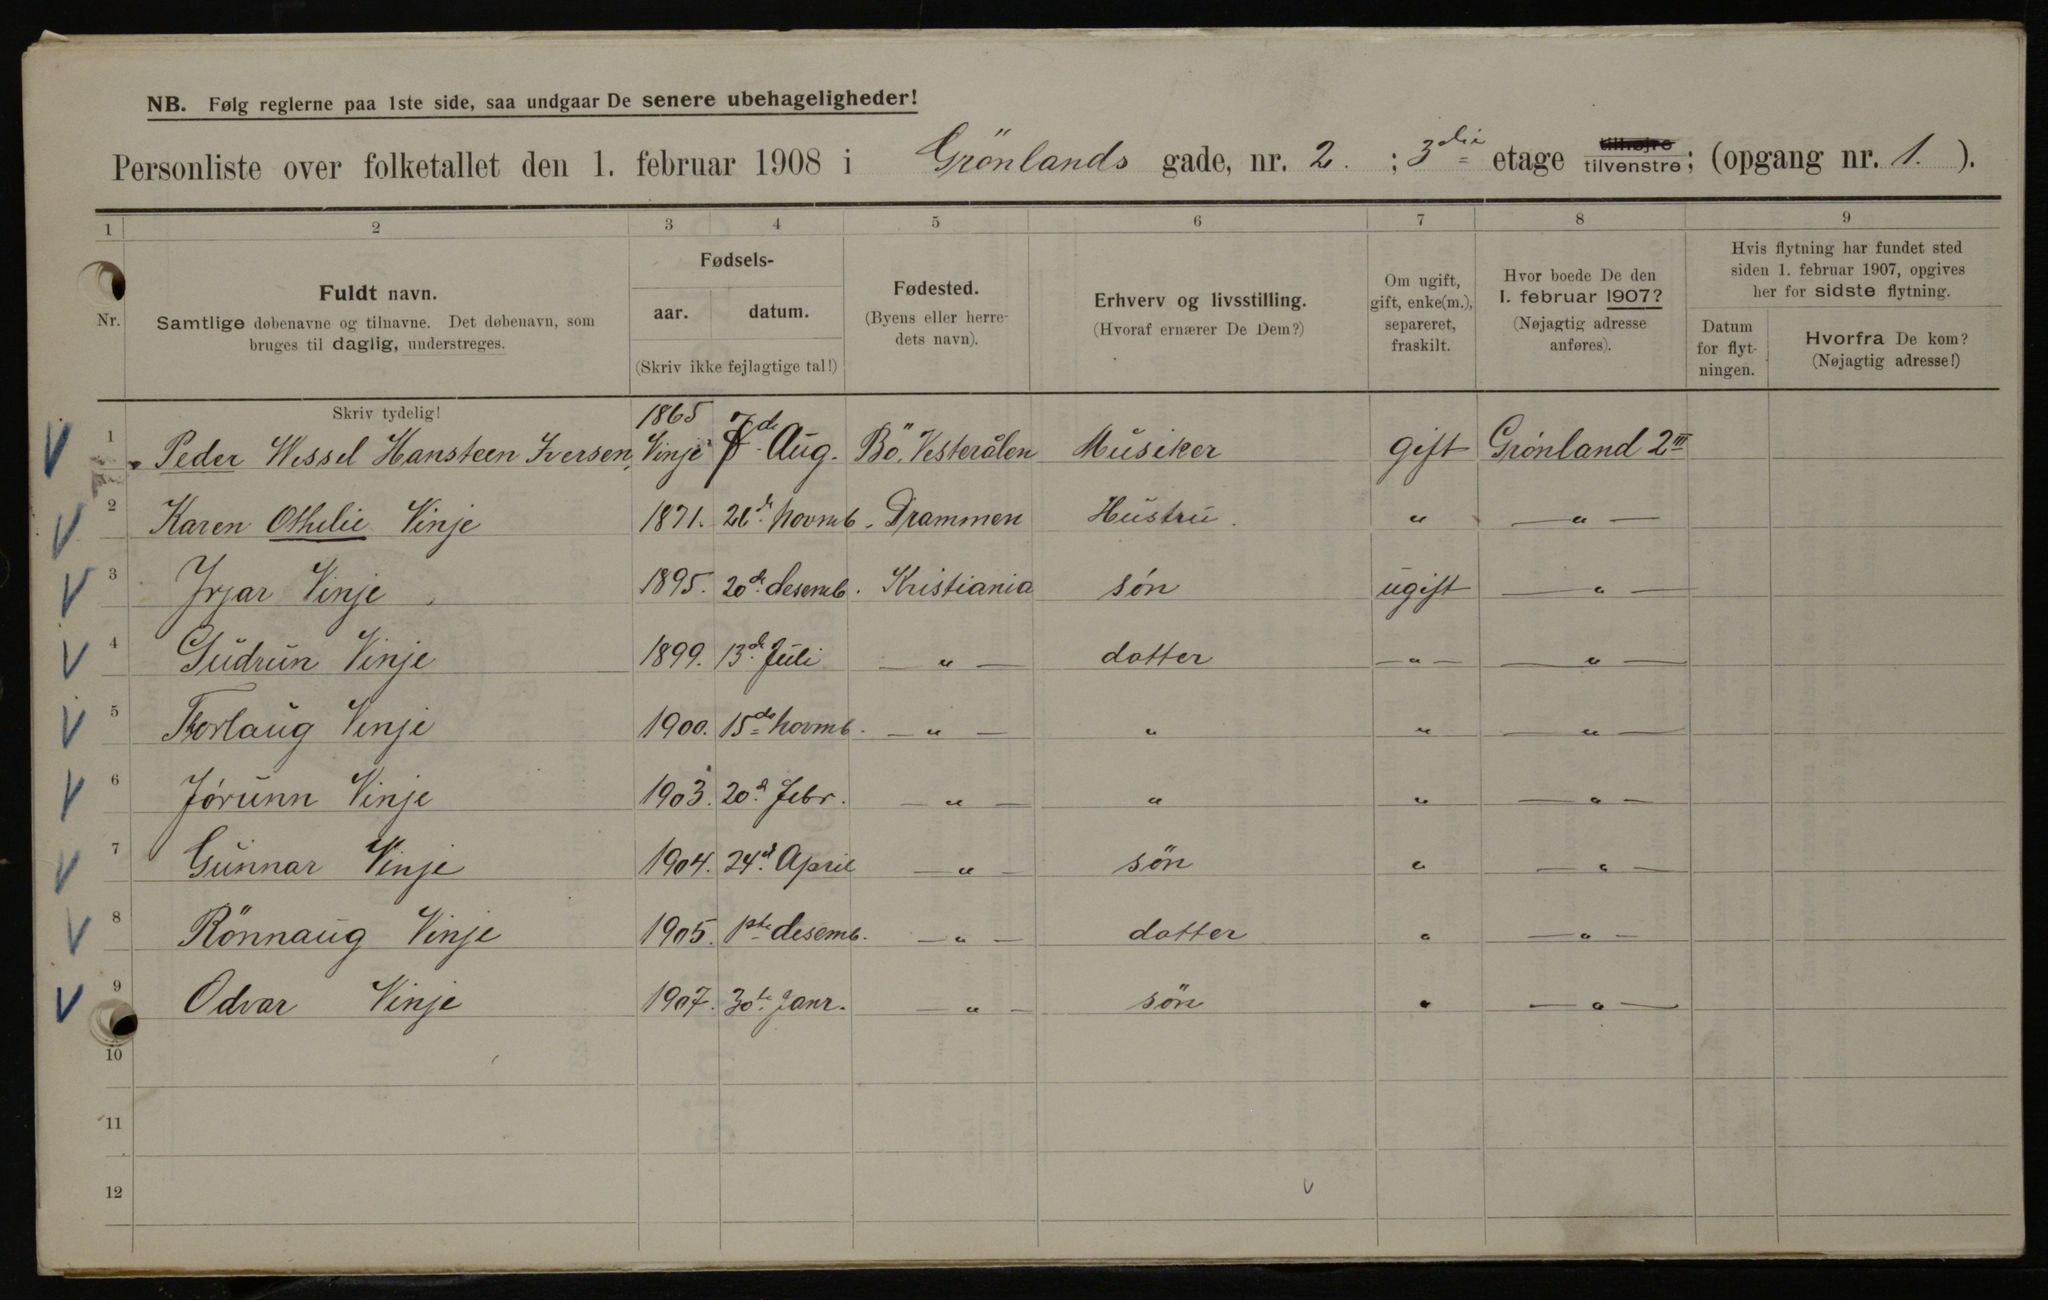 NB. Følg reglerne paa 1ste side, saa undgaar De senere ubehageligheder!
Personliste over folketallet den 1. februar 1908 i Grönlands gade, nr. 2. ; 3die etage tilhøjre tilvenstre; (opgang nr. 1. ).
1 2 3 4 5 6 7 8 9
Nr. Fuldt navn. Samtlige døbenavne og tilnavne. Det døbenavn, som bruges til daglig, understreges.
Fødsels- aar. datum. (Skriv ikke fejlagtige tal!)
Fødested. (Byens eller herredets navn).
Erhverv og livsstilling. (Hvoraf ernærer De Dem?)
Om ugift, gift, enke(m.), separeret, fraskilt.
Hvor boede De den 1. februar 1907? (Nøjagtig adresse anføres).
Hvis flytning har fundet sted siden 1. februar 1907, opgives her for sidste flytning.
Datum for flytningen. Hvorfra De kom? (Nøjagtig adresse!)
Skriv tydelig!
1 Peder Wessel Hansteen Iversen, Vinje 1865 7d. Aug. Bö. Vesterålen Musiker gift Grønland 2 III
2 Karen Othilie Vinje 1871. 21d. Novmb. Drammen Hustru. " — " —
3 Irjar Vinje 1895. 20d. desemb. Kristiania søn ugift — " —
4 Gudrun Vinje 1899. 13d. Juli — " — datter — " — — " —
5 Torlaug Vinje 1900. 15de Novmb. — " — " " — " —
6 Jórunn Vinje 1903. 20d. Febr. — " — " " — " —
7 Gunnar Vinje 1904. 24d. April — " — sön " — " —
8 Rönnaug Vinje 1905. 1ste desemb. — " — datter " — " —
9 Odvar Vinje 1907. 30te Janr. — " — sön " — " —
10
11
12